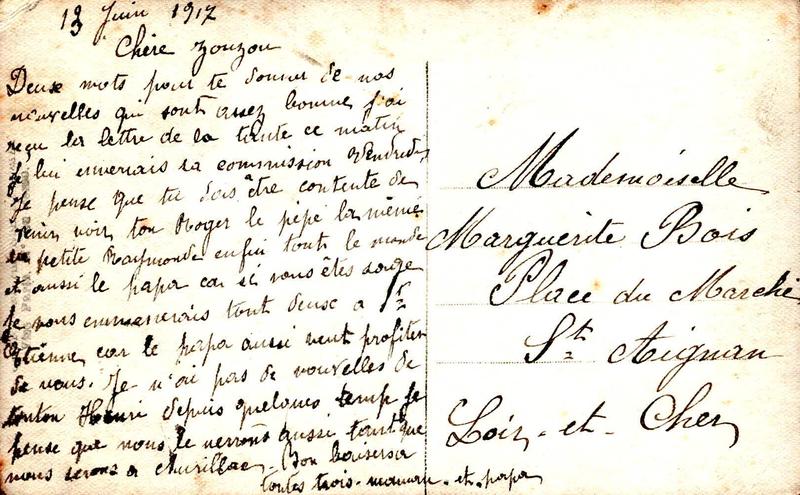 13 Juin 1917
Chère Zouzou
Deux mots pour te donner de nos
nouvelles qui sont assez bonne j'ai
reçu la lettre de la tante ce matin
je lui enverrais sa commission Vendredi
Je pense que tu dois être contente de
venir voir ton Roger le pépé la mémé
la petite Raymonde enfin tout le monde
et aussi le papa car si vous êtes sage
Je vous emmenerais tout deuse a St
Etienne car le papa aussi veut profiter
de vous. Je n'ai pas de nouvelles de
tonton Henri depuis quelques temp je
pense que nous le verrons aussi tant que
nous serons a Aurillac. Bon baiser a
toutes trois - maman - et - papa
Mademoiselle
Marguerite Bois
Place du Marché
St Aignan
Loir - et - Cher